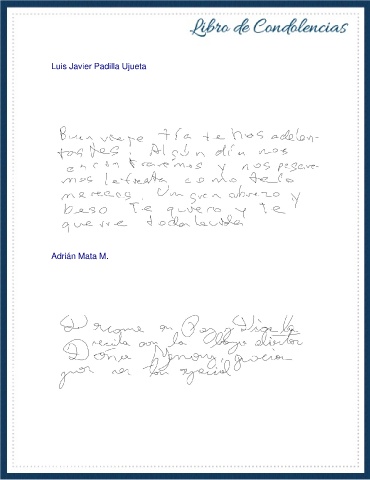 Libro de Condolencias
Luis Javier Padilla Ujueta
Buen viaje tía te nos adelan-
tastes. Algún día nos
encontraremos y nos pegare-
mos la fiesta como te lo
mereces. Un gran abrazo y
beso Te quiero y te
querre toda la vida
Adrián Mata M.
Doña
por ser tan especial